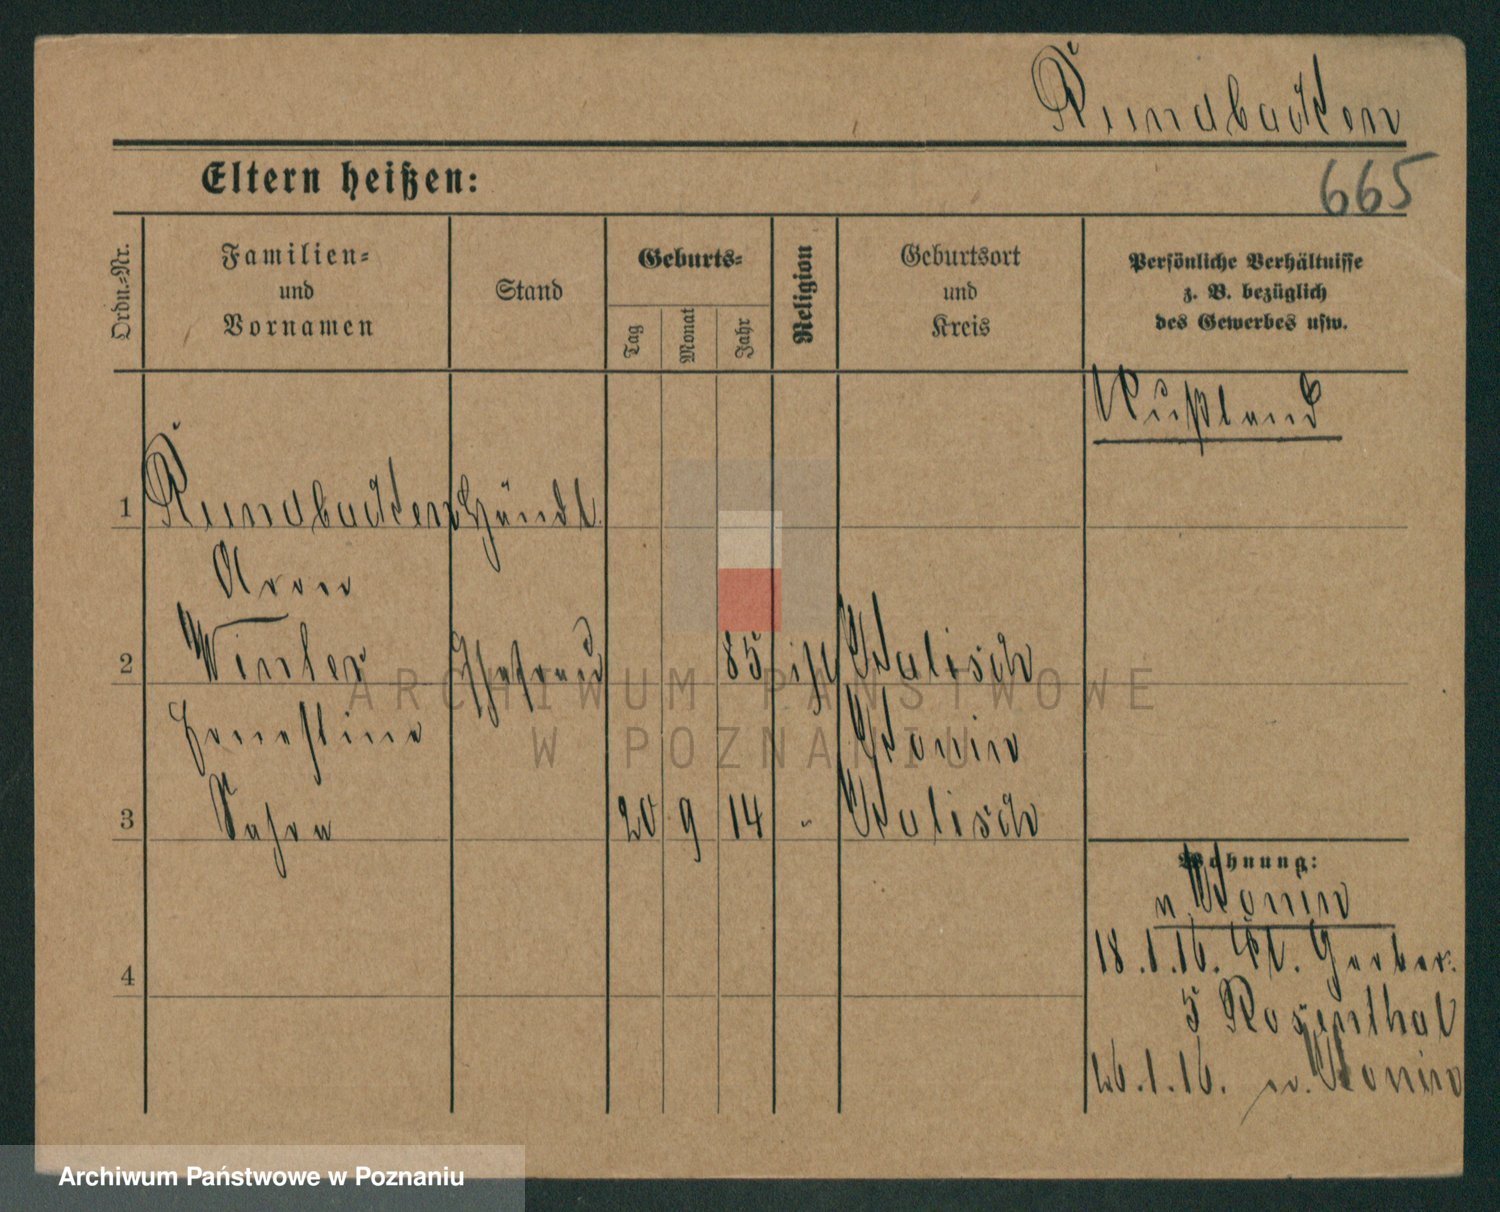 Rundbacken
Eltern heißen:
665
Ordn.-Nr.
Familien-
und
Vornamen
Stand
Geburts-
Tag
Monat
Jahr
Religion
Geburtsort
und
Kreis
Persönliche Verhältnisse
z. B. bezüglich
des Gewerbes usw.
Rußland
1 Rundbacken Händl.
Aron
2 Winter Ehefrau 85 isr Kalisch
Ernestine Konin
3 Sahra 20 9 14 " Kalisch
4
Wohnung:
n. Konin
18.1.16. Kl. Gerber.
5 Rosenthal
26.1.16. n. Konin
ARCHIWUM PAŃSTWOWE
W POZNANIU
Archiwum Państwowe w Poznaniu